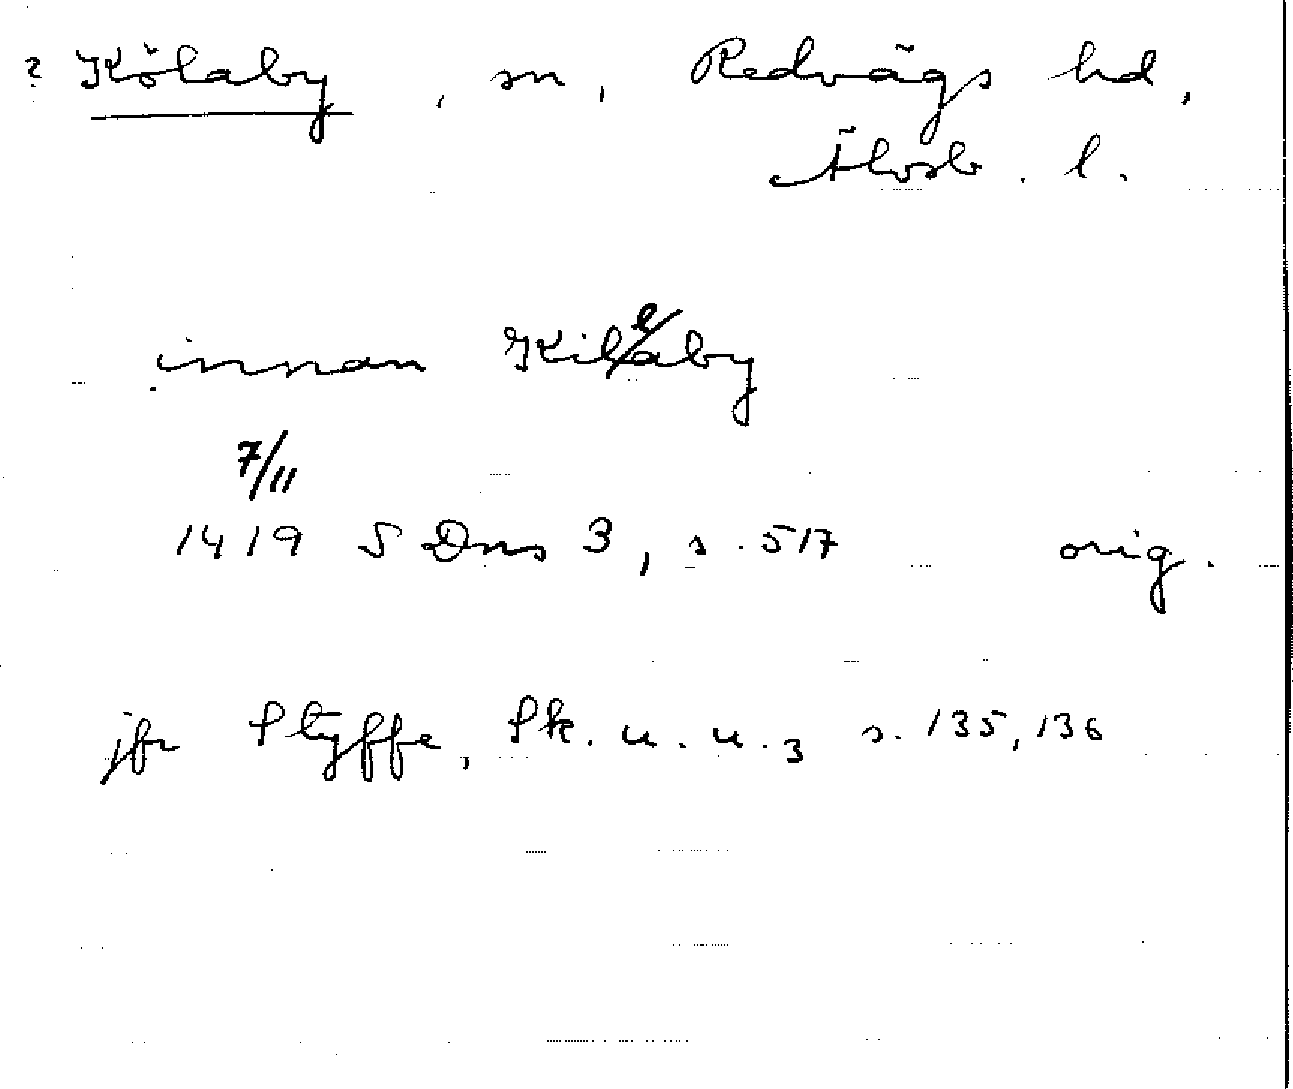 ? Kölaby, sn, Redvägs hd,
Älvsb. l.
innan Kileby
7/11
1419 S Dns 3, s. 517 orig.
jfr Styffe, Sk. u. u. 3 s. 135, 136